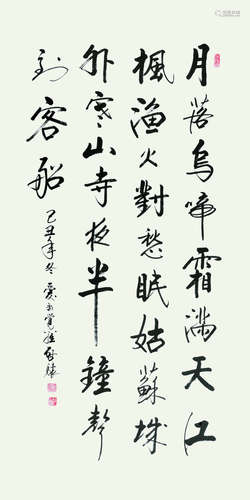 月落乌啼霜满天江
枫渔火對愁眠姑蘇城
外寒山寺夜半鐘聲
到客船
己丑年冬